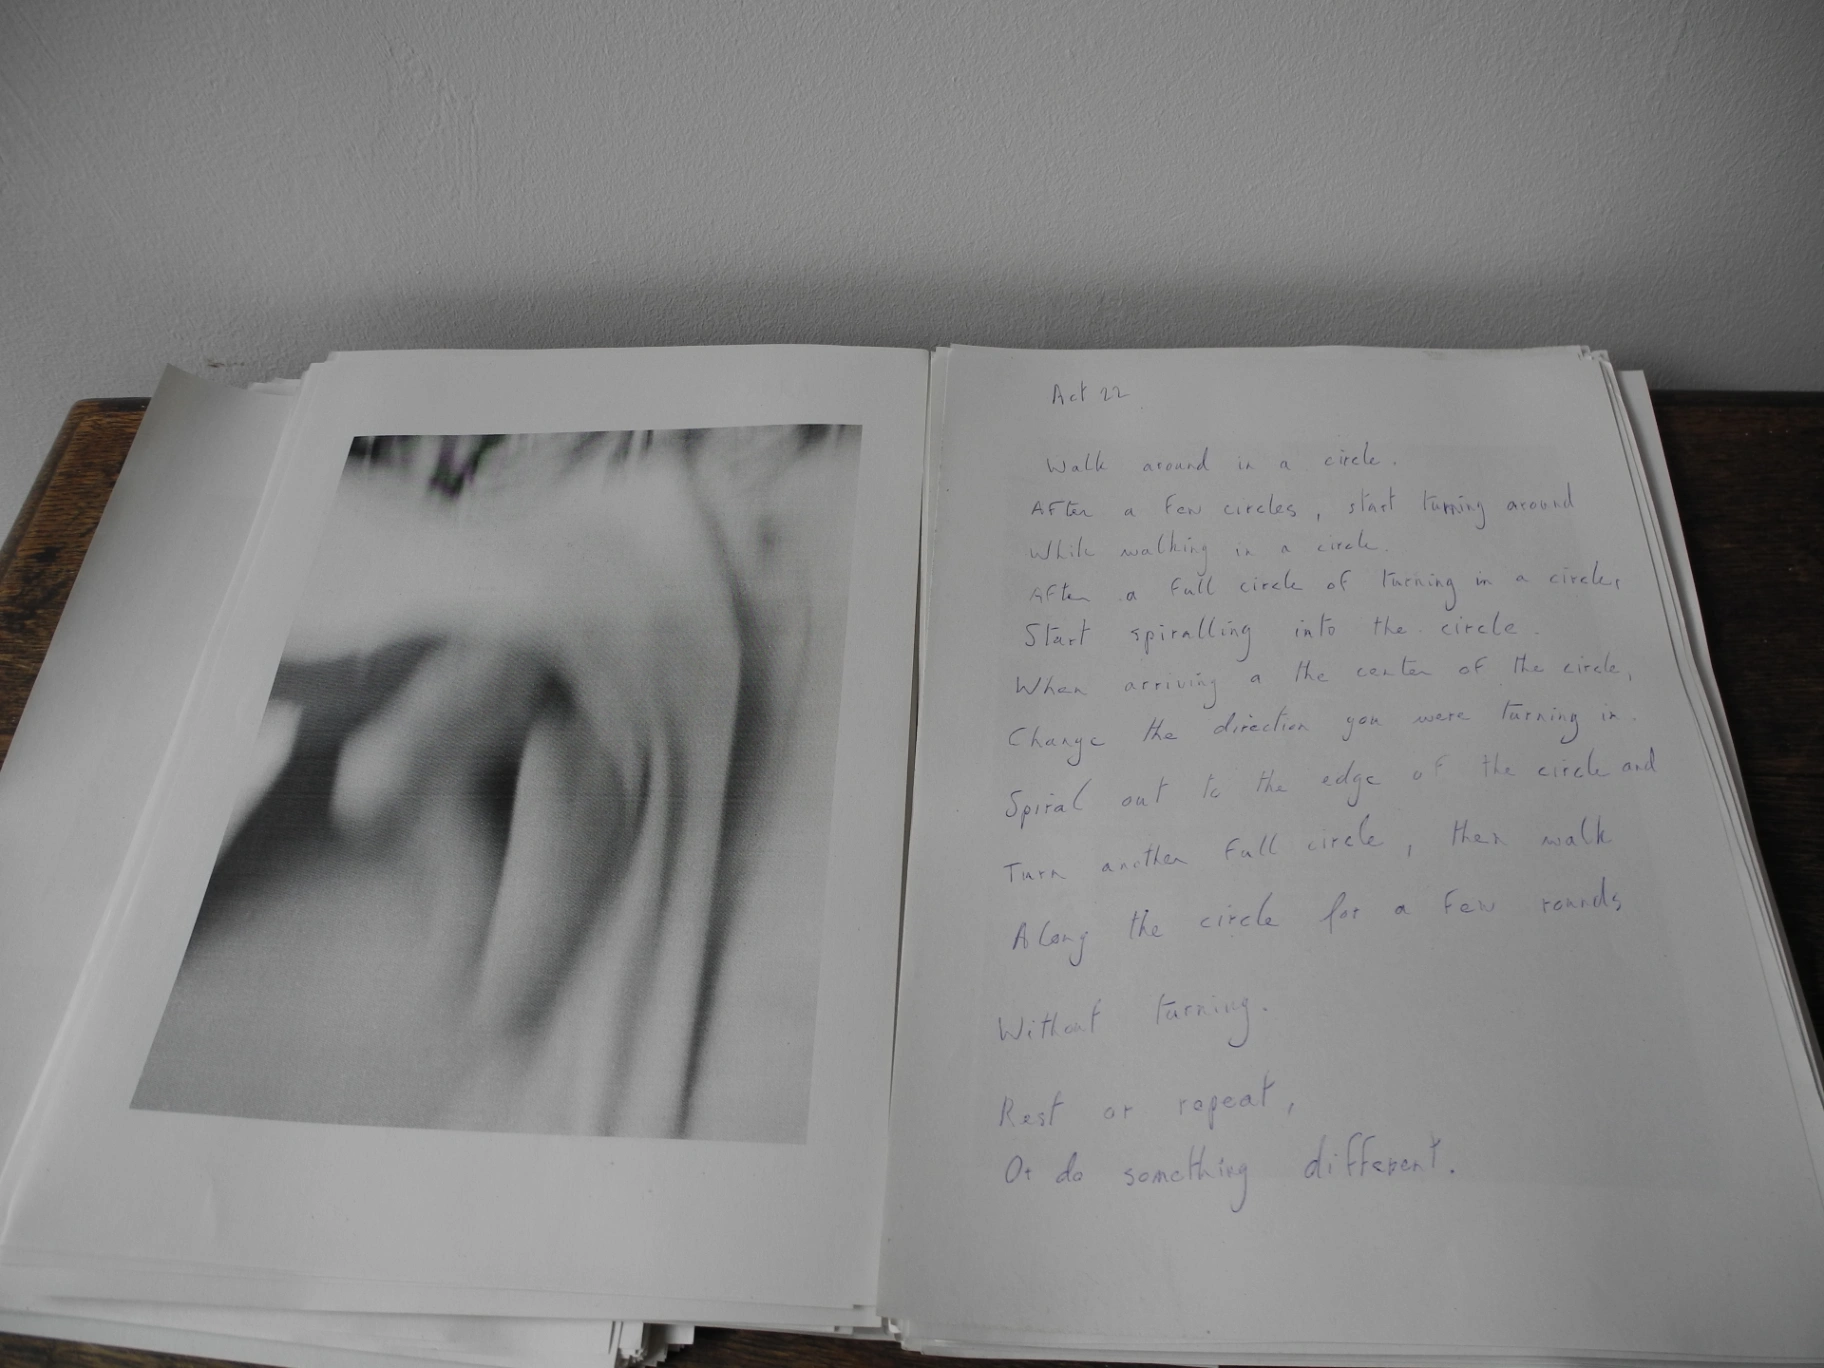 Act 22
Walk around in a circle.
After a few circles, start turning around
While walking in a circle.
After a full circle of turning in a circle,
Start spiralling into the circle.
When arriving a the center of the circle,
Change the direction you were turning in.
Spiral out to the edge of the circle and
Turn another full circle, then walk
Along the circle for a few rounds
Without turning.
Rest or repeat,
Or do something different.